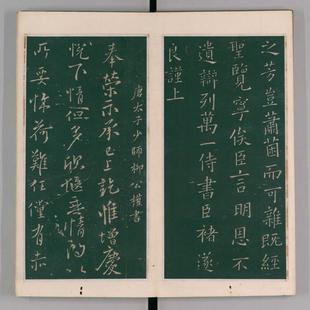 之芳豈蕭茵而可雜既經
聖覽寧俟臣言明恩不
遺辯列萬一侍書臣褚遂
良謹上
唐太子少師柳公權書
奉榮示承已上訖惟增慶
悅下情但多欣愜垂情
所要悚荷難任僅有赤